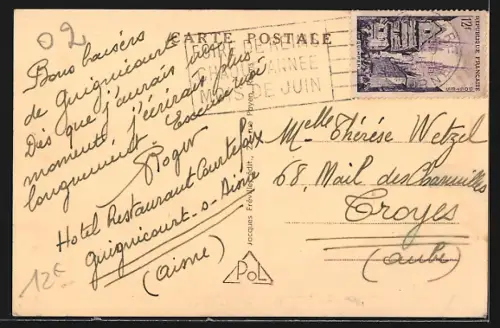 02
CARTE POSTALE
Bons baisers
de Guignicourt
Dès que j'aurais un
moment, j'écrirai plus
longuement. Excuse-moi
Roger
Hotel Restaurant Courtefoix
Guignicourt-s-Aisne
(Aisne)
12€
FOIRE DE REIMS
CHAQUE ANNEE
MOIS DE JUIN
12F
REPUBLIQUE FRANÇAISE
Melle Thérèse Wetzel
68, Mail des Charmilles
Troyes
(Aube)
Jacques Fréville, édit.,
PoL